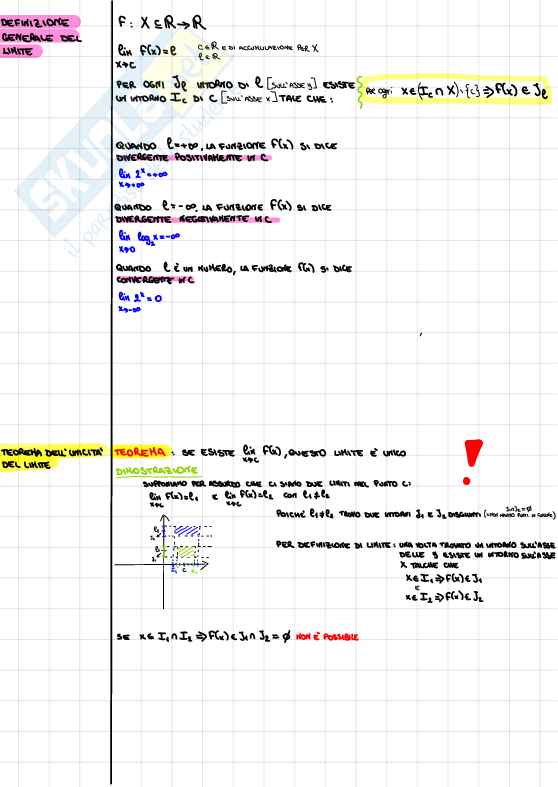 DEFINIZIONE
GENERALE DEL
LIMITE
F: X ⊆ ℝ → ℝ
lim f(x)=ℓ c∈ℝ E DI ACCUMULAZIONE PER X
x→c ℓ∈ℝ
PER OGNI Jℓ INTORNO DI ℓ [SULL'ASSE y] ESISTE
UN INTORNO Ic DI C [SULL'ASSE x] TALE CHE:
Per ogni x∈(Ic∩X)\{c} ⇒ f(x) ∈ Jℓ
QUANDO ℓ=+∞, LA FUNZIONE f(x) SI DICE
DIVERGENTE POSITIVAMENTE IN C
lim 2^x=+∞
x→+∞
QUANDO ℓ=-∞, LA FUNZIONE f(x) SI DICE
DIVERGENTE NEGATIVAMENTE IN C
lim log₂x=-∞
x→0
QUANDO ℓ È UN NUMERO, LA FUNZIONE f(x) SI DICE
CONVERGENTE IN C
lim 2^x=0
x→-∞
TEOREMA DELL'UNICITA'
DEL LIMITE
TEOREMA: SE ESISTE lim f(x), QUESTO LIMITE E' UNICO
x→c
!
DIMOSTRAZIONE
SUPPONIAMO PER ASSURDO CHE CI SIANO DUE LIMITI NEL PUNTO C:
lim f(x)=ℓ₁ E lim f(x)=ℓ₂ CON ℓ₁≠ℓ₂
x→c x→c
POICHÈ ℓ₁≠ℓ₂ TROVO DUE INTORNI J₁ E J₂ DISGIUNTI J₁∩J₂=∅
PER DEFINIZIONE DI LIMITE: UNA VOLTA TROVATO UN INTORNO SULL'ASSE
DELLE y ESISTE UN INTORNO SULL'ASSE
X TALE CHE
x∈I₁⇒f(x)∈J₁
E
x∈I₂⇒f(x)∈J₂
SE x∈I₁∩I₂ ⇒ f(x)∈J₁∩J₂=∅ NON È POSSIBILE